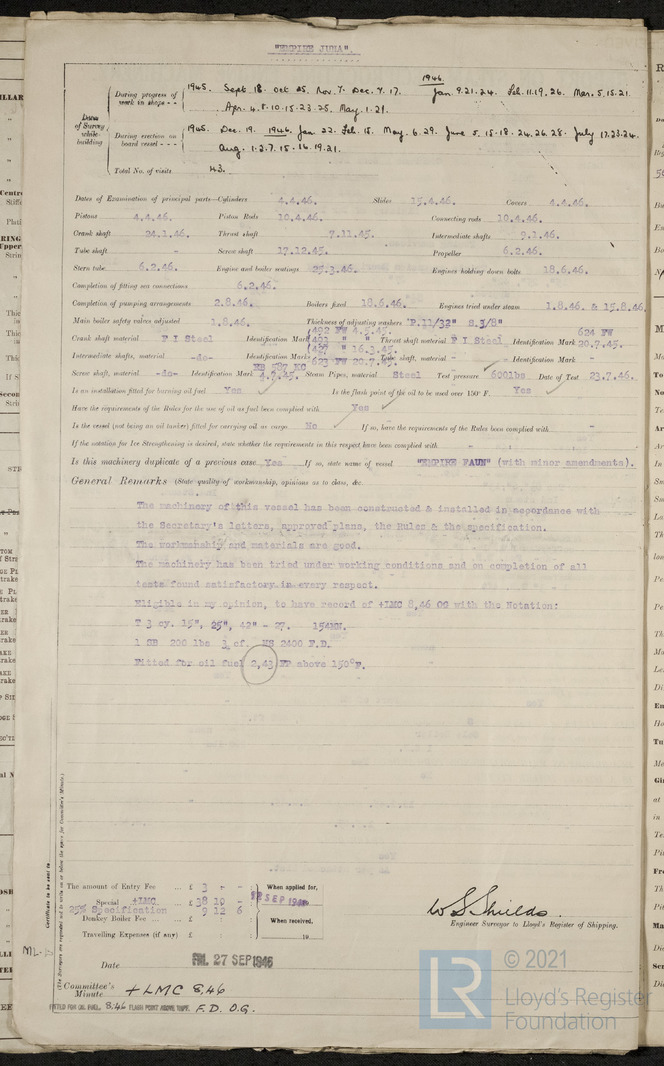 "EMPIRE JURA".
Dates of Survey while building
During progress of work in shops - - 1945. Sept. 18. Oct 25. Nov. 7. Dec. 7. 17. 1946. Jan. 9. 21. 24. Feb. 11. 19. 26. Mar. 5. 15. 21.
Apr. 4. 8. 10. 15. 23. 25. May. 1. 21.
During erection on board vessel - - - 1945. Dec. 19. 1946. Jan. 22. Feb. 15. May. 6. 29. June 5. 15. 18. 24. 26. 28. July 17. 23. 24.
Aug. 1. 2. 7. 15. 16. 19. 21.
Total No. of visits 43.
Dates of Examination of principal parts—Cylinders 4.4.46. Slides 15.4.46. Covers 4.4.46.
Pistons 4.4.46. Piston Rods 10.4.46. Connecting rods 10.4.46.
Crank shaft 24.1.46. Thrust shaft 7.11.45. Intermediate shafts 9.1.46.
Tube shaft - Screw shaft 17.12.45. Propeller 6.2.46.
Stern tube 6.2.46. Engine and boiler seatings 29.3.46. Engines holding down bolts 18.6.46.
Completion of fitting sea connections 6.2.46.
Completion of pumping arrangements 2.8.46. Boilers fixed 18.6.46. Engines tried under steam 1.8.46. & 15.8.46
Main boiler safety valves adjusted 1.8.46. Thickness of adjusting washers "P.11/32" S.3/8"
Crank shaft material F I Steel Identification Mark (492 FW 4.5.45. (493 " " Thrust shaft material F I Steel Identification Mark 624 FW 20.7.45.
Intermediate shafts, material -do- Identification Marks (427 " 16.3.45. (623 FW 20.7.45. Tube shaft, material - Identification Mark -
Screw shaft, material -do- Identification Mark HB 587 MC 4.7.45. Steam Pipes, material Steel Test pressure 600lbs Date of Test 23.7.46.
Is an installation fitted for burning oil fuel Yes Is the flash point of the oil to be used over 150° F. Yes
Have the requirements of the Rules for the use of oil as fuel been complied with Yes
Is the vessel (not being an oil tanker) fitted for carrying oil as cargo No If so, have the requirements of the Rules been complied with -
If the notation for Ice Strengthening is desired, state whether the requirements in this respect have been complied with -
Is this machinery duplicate of a previous case Yes If so, state name of vessel "EMPIRE FAUN" (with minor amendments).
General Remarks (State quality of workmanship, opinions as to class, &c.
The machinery of this vessel has been constructed & installed in accordance with
the Secretary's letters, approved plans, the Rules & the specification.
The workmanship and materials are good.
The machinery has been tried under working conditions and on completion of all
tests found satisfactory in every respect.
Eligible in my opinion, to have record of +LMC 8,46 OG with the Notation:
T 3 cy. 15", 25", 42" - 27. 154NH.
1 SB 200 lbs 3 cf. HS 2400 F.D.
Fitted for oil fuel 2,43 FP above 150°F.
Certificate to be sent to
(The Surveyors are requested not to write on or below the space for Committee's Minute.)
The amount of Entry Fee ... £ 3 - -
Special +LMC ... £ 38 10 -
25% Specification 9 12 6
Donkey Boiler Fee ... £
Travelling Expenses (if any) £
When applied for,
SEP 1946
When received,
19
W S Shields.
Engineer Surveyor to Lloyd's Register of Shipping.
Date FRI. 27 SEP 1946
Committee's Minute + LMC 8,46
FITTED FOR OIL FUEL. 8.46 FLASH POINT ABOVE 150°F. F.D. O.G.
LR
© 2021
Lloyd's Register
Foundation